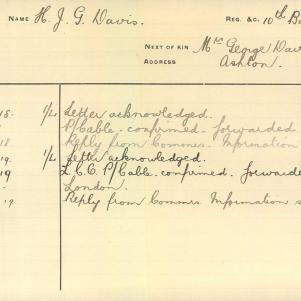 NAME H. J. G. Davis. REG. &C. 10th Ba
NEXT OF KIN Mrs George Dav
ADDRESS Ashton.
18. 1/L Letter acknowledged.
P/Cable. confirmed. forwarded
18 Reply from Commrs. Information
19. 1/L Letter acknowledged.
19 L.C.O. P/Cable. confirmed. forwarde
London.
19 Reply from Commrs Information s